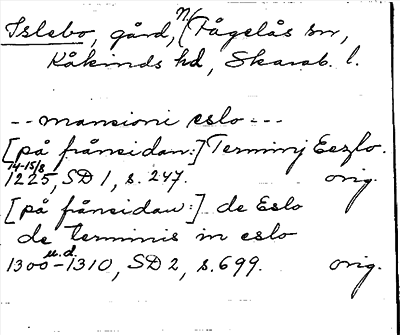 Islebo, gård, N. Fågelås sn,
Kåkinds hd, Skarab. l.
-- mansioni eslo ---
[på frånsidan:] Terminj Eezlo.
14-15/8
1225, SD 1, s. 247. orig.
[på frånsidan:] de Eslo
de terminis in eslo
u.d.
1300-1310, SD 2, s. 699. orig.